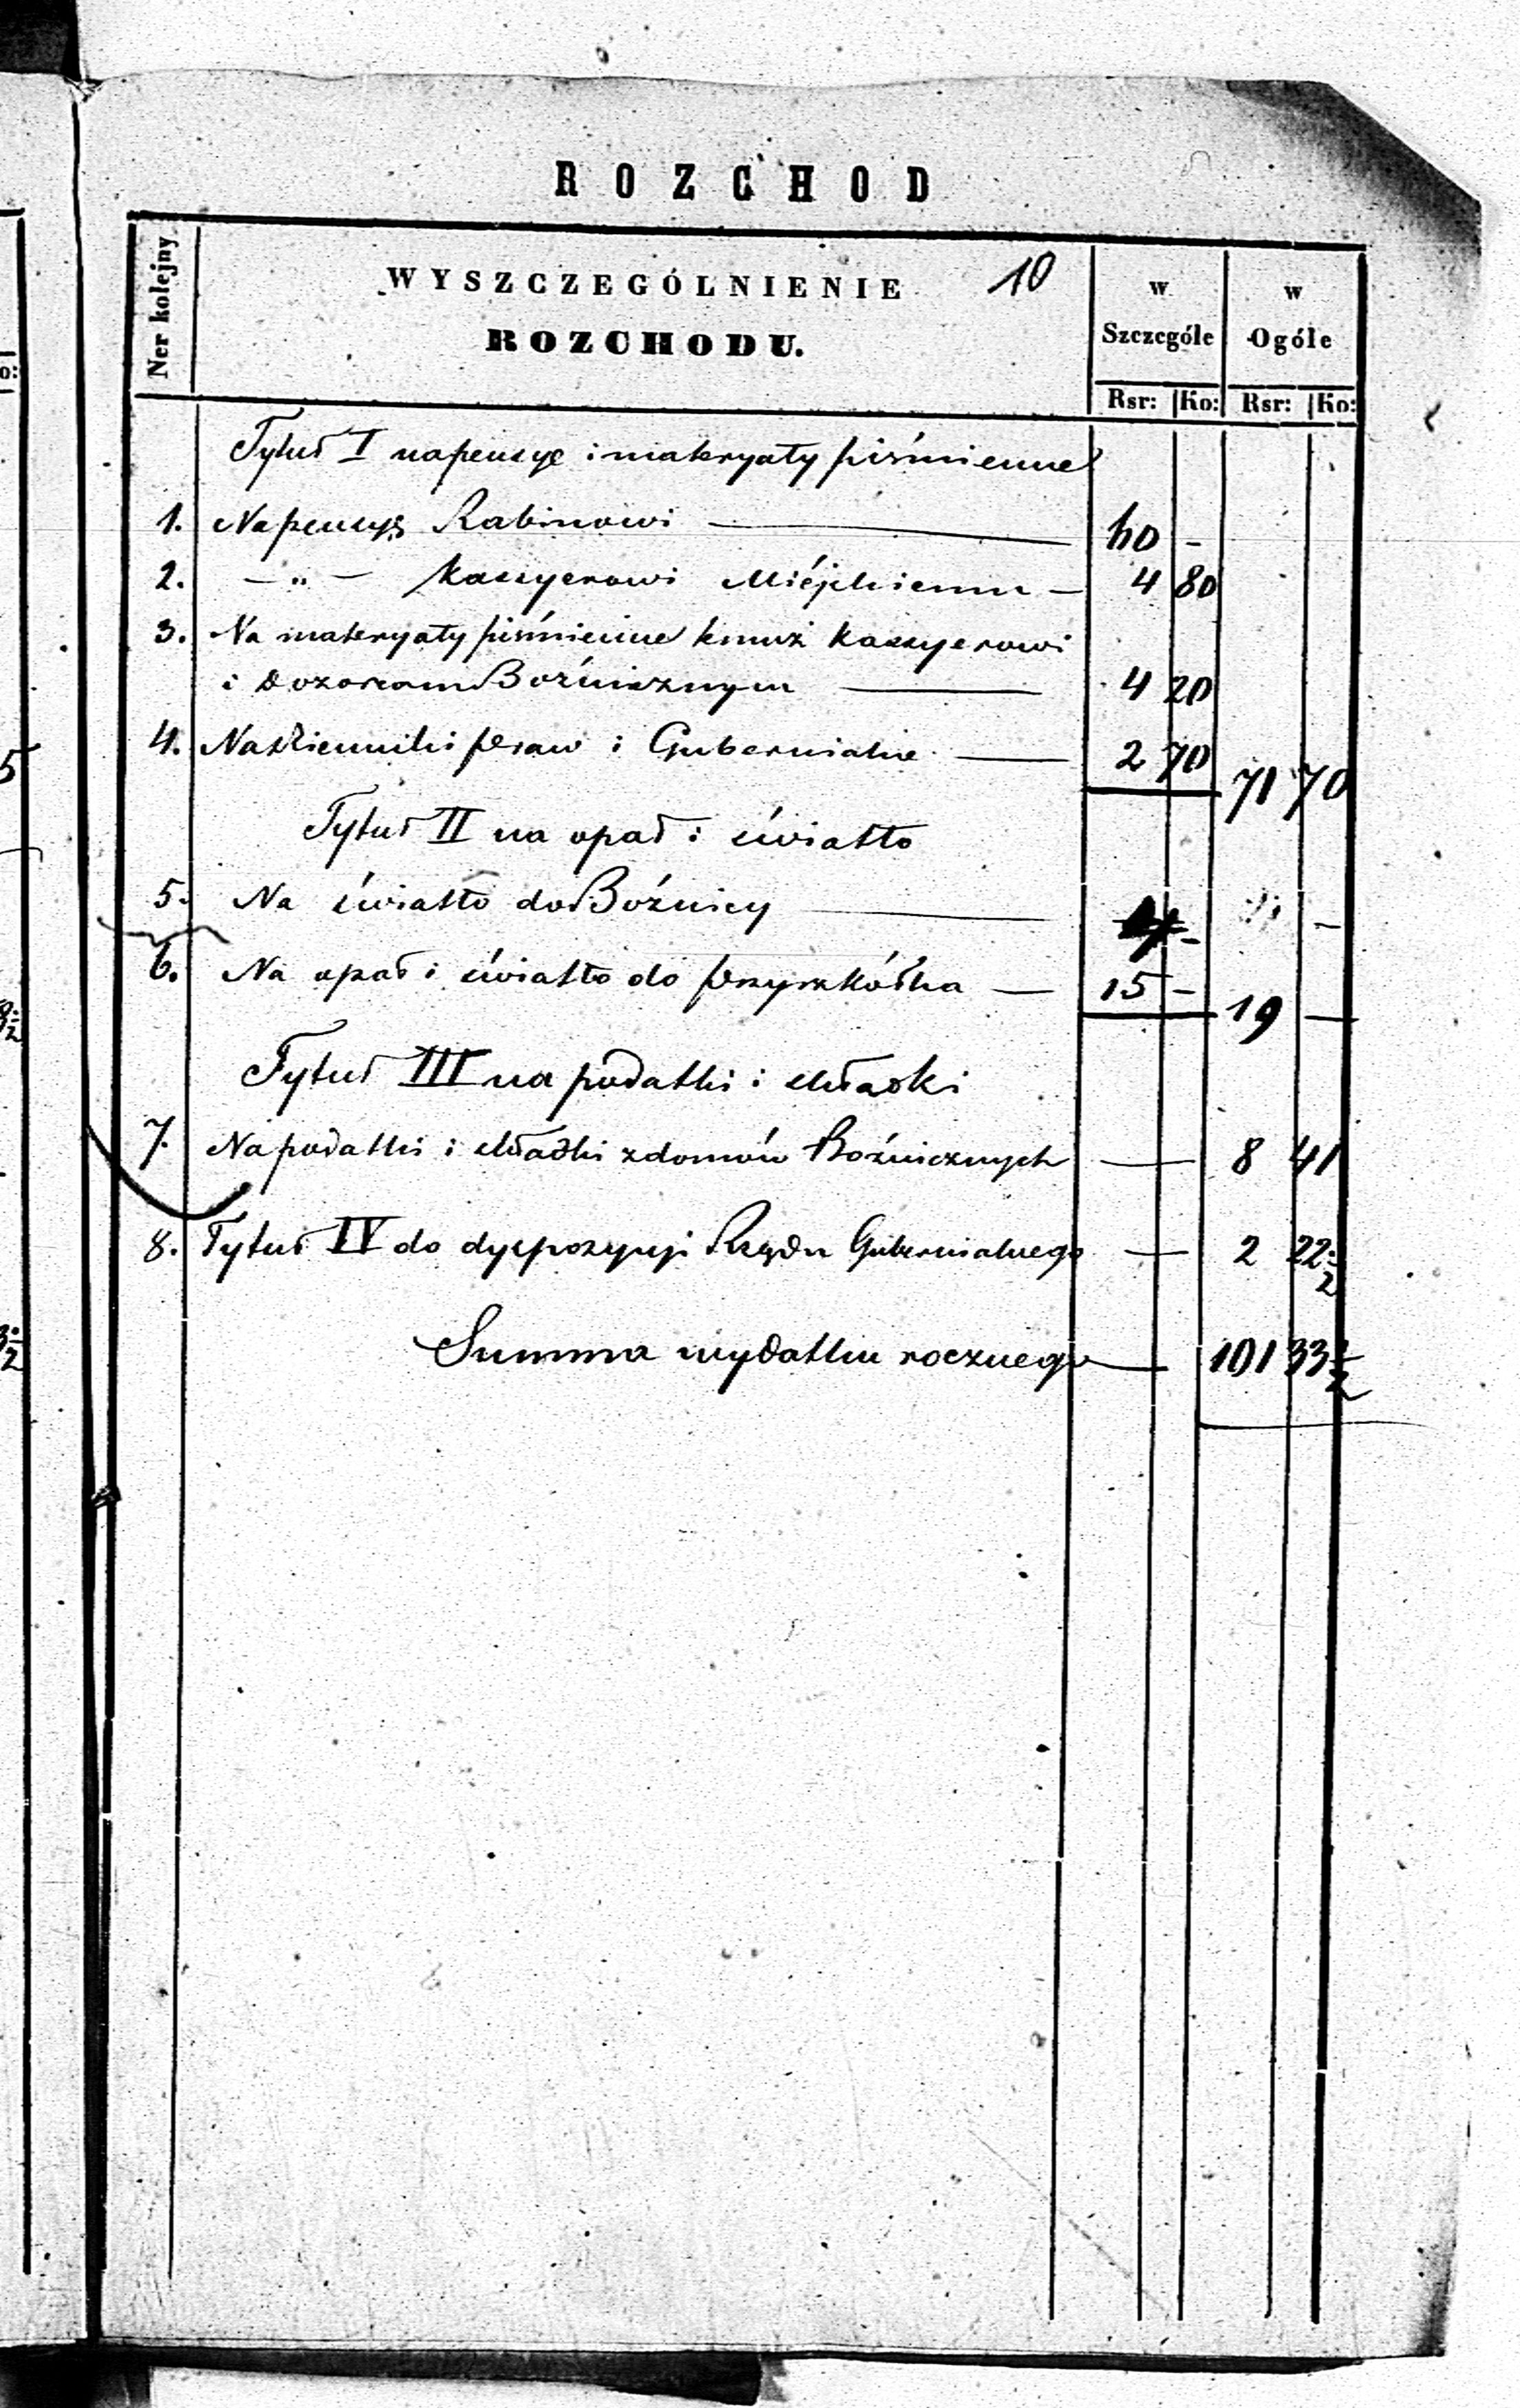 ROZCHOD
Ner kolejny
WYSZCZEGÓLNIENIE 10
ROZCHODU.
w Szczególe
w Ogóle
Rsr: Ko: Rsr: Ko:
Tytuł I na pensye i materyały piśmienne
1. Na pensyę Rabinowi — 60 -
2. - „ - Kassyerowi Miéjskiemu — 4 80
3. Na materyały piśmienne temuż Kassyerowi
i Dozorcom Bożnicznym — 4 20
4. Na Dzienniki praw i Gubernialne — 2 70 71 70
Tytuł II na opał i światło
5. Na światło do Bożnicy — 4 -
6. Na opał i światło do przyszkółka — 15 - 19 —
Tytuł III na podatki i składki
7. Na podatki i składki z domów Bożnicznych — 8 41
8. Tytuł IV do dyspozycyi Rządu Gubernialnego — 2 22 1/2
Summa wydatku rocznego — 101 33 1/2